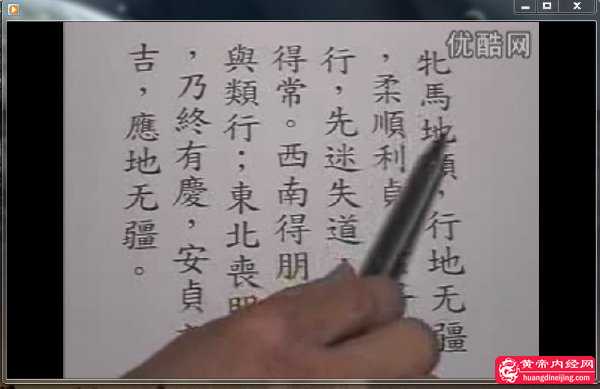 牝馬地類，行地无疆
，柔順利貞
行，先迷失道，
得常。西南得朋
與類行；東北喪朋
，乃終有慶，安貞
吉，應地无疆。
优酷网
黄帝内经网
huangdineijing.com